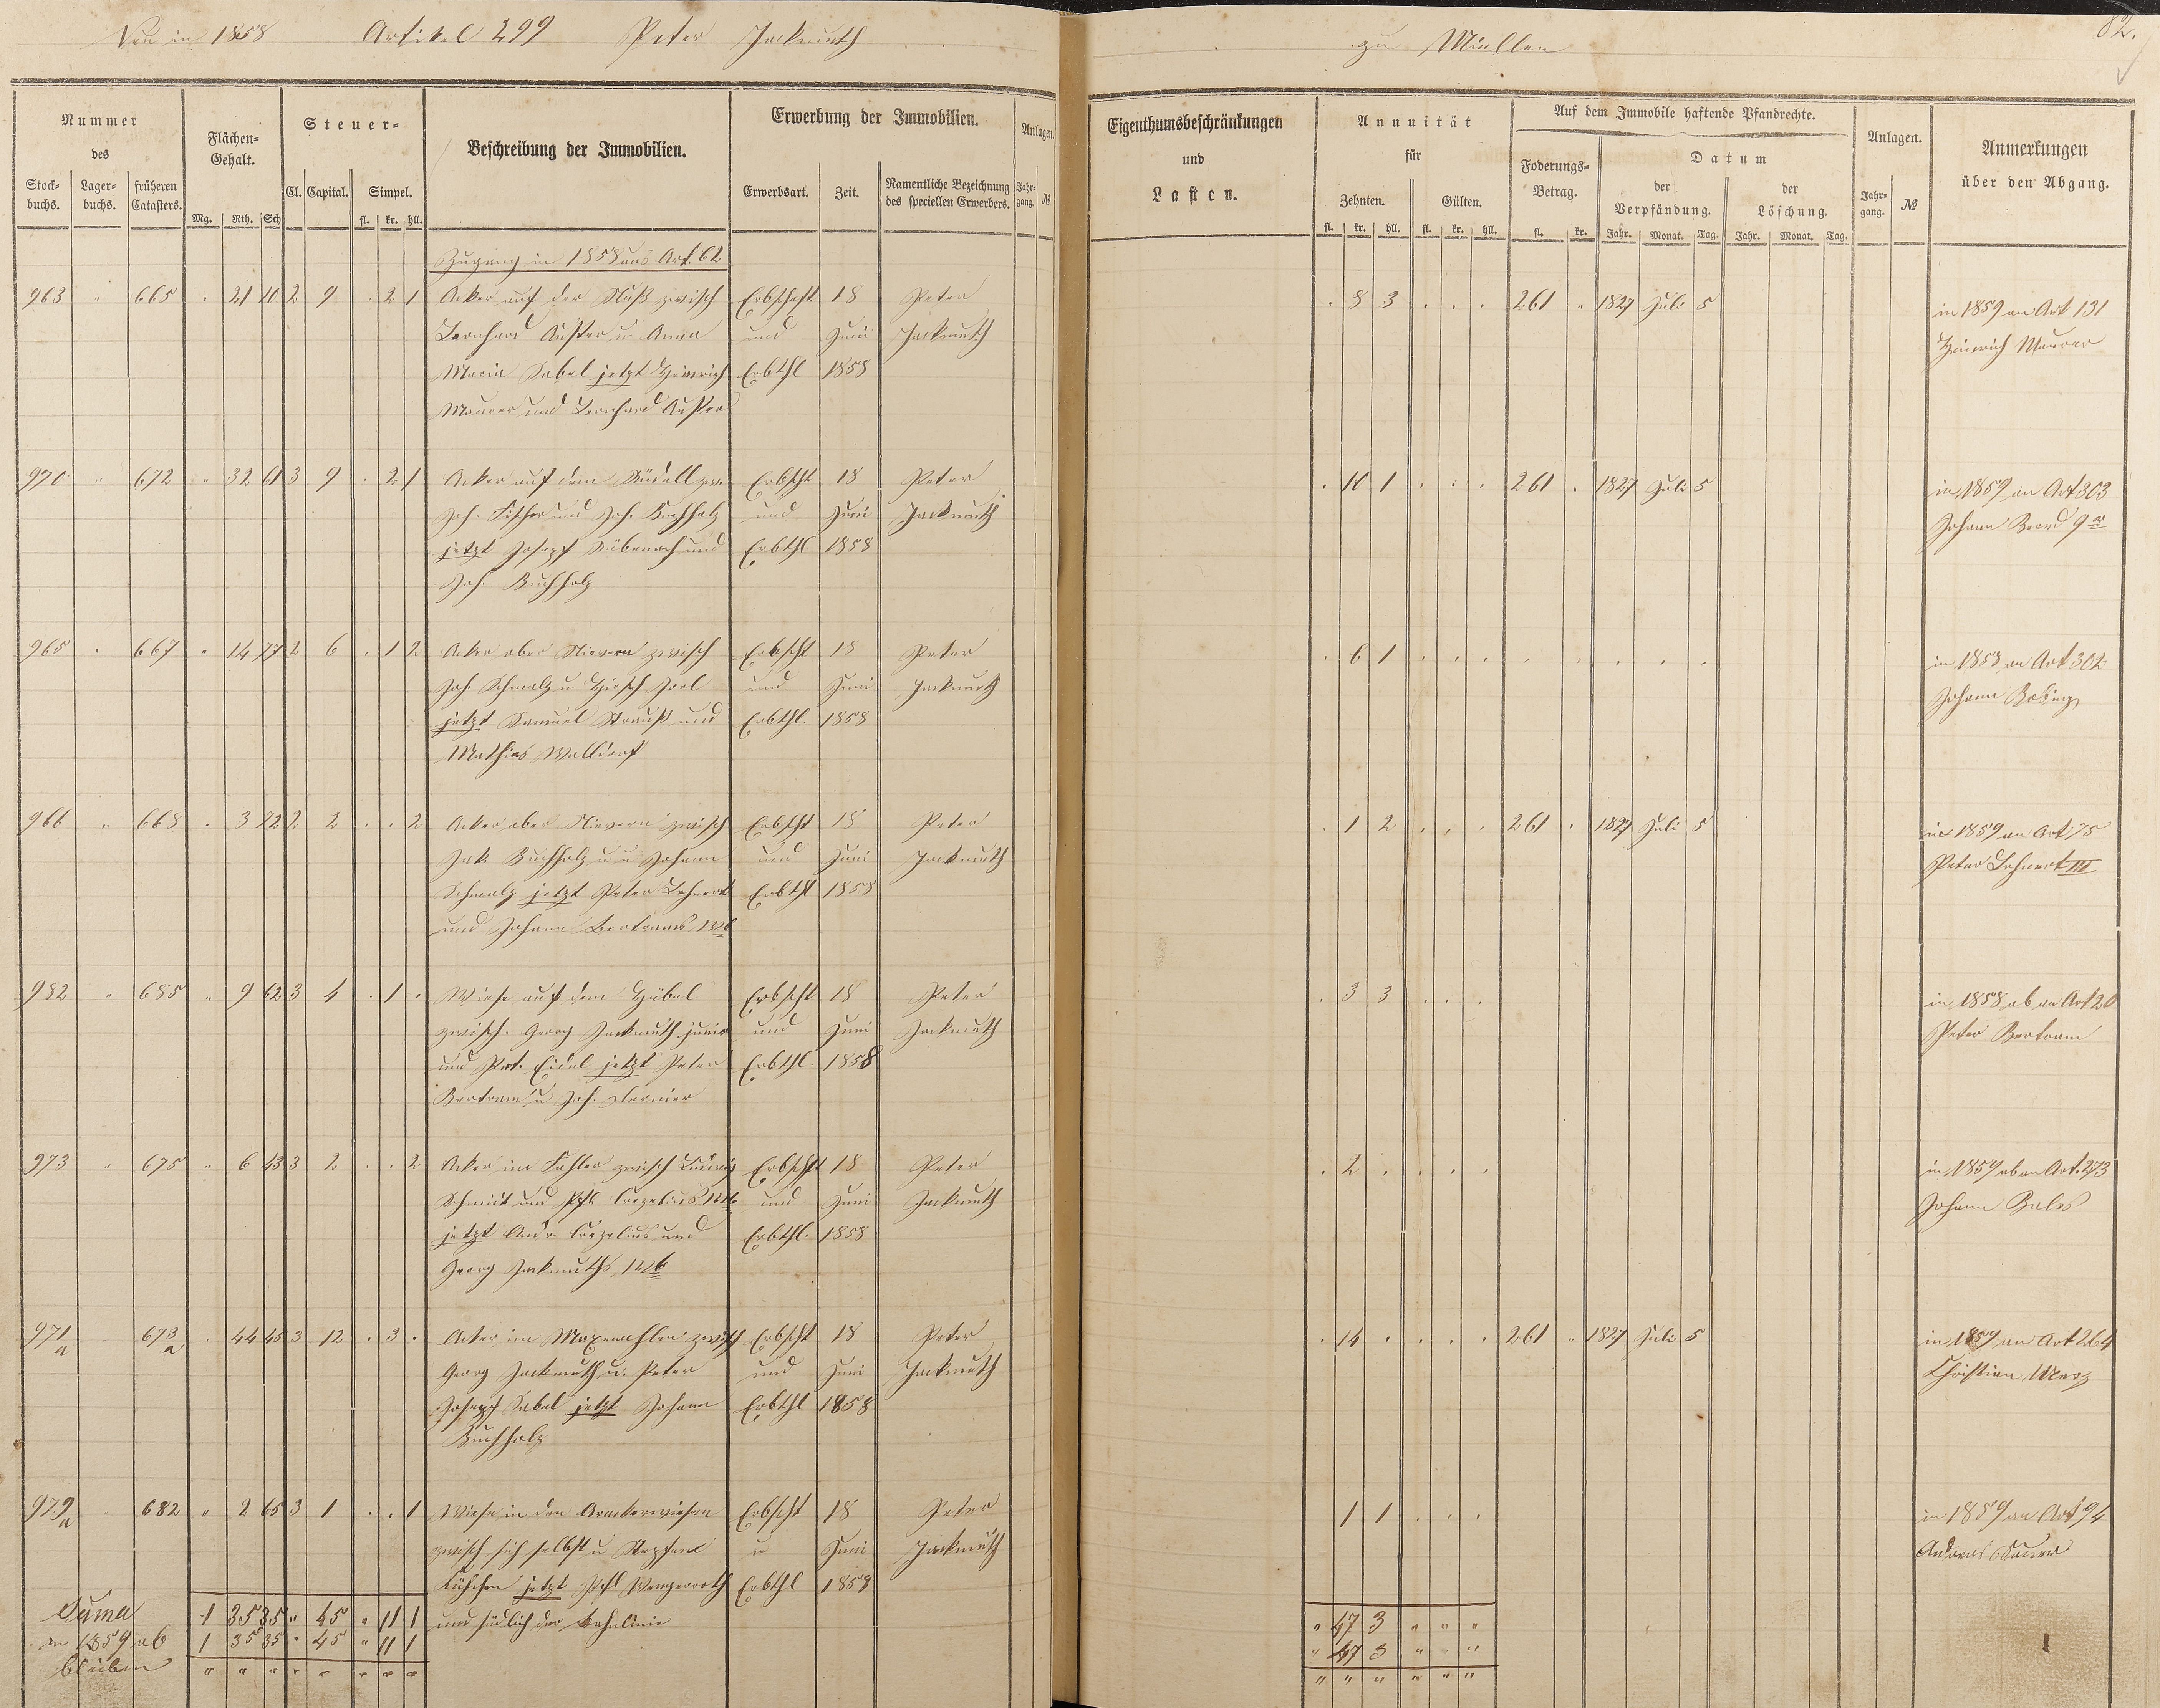 Neu in 1858 Artikel 299 Peter Jackmuth
zu Müllen
82.
Nummer
des
Stock-
buchs.
Lager-
buchs.
früheren
Catasters.
Flächen-
Gehalt.
Mg. Rth. Sch
Steuer-
Cl. Capital. Simpel.
fl. kr. hll.
Beschreibung der Immobilien.
Erwerbung der Immobilien.
Erwerbsart. Zeit.
Namentliche Bezeichnung
des speciellen Erwerbers.
Anlagen.
Jahr-
gang. №
Eigenthumsbeschränkungen
und
Lasten.
Annuität
für
Zehnten. Gülten.
fl. kr. hll. fl. kr. hll.
Auf dem Immobile haftende Pfandrechte.
Foderungs-
Betrag.
fl. kr.
Datum
der
Verpfändung.
Jahr. Monat. Tag.
der
Löschung.
Jahr. Monat. Tag.
Anlagen.
Jahr-
gang. №
Anmerkungen
über den Abgang.
Zugang in 1858 aus Art. 62
963 " 665 . 21 10 2 9 . 2 1 Acker auf der zwisch Erbschaft 18 Peter . 8 3 . . . 261 " 1827 Juli 5 in 1859 an Art 131
Bernhard u Anna und Juni Jackmuth Heinrich Maurer
Maria Sabel jetzt Heinrich Erbthl 1858
Maurer und Bernhard
970 " 672 " 32 61 3 9 . 2 1 Acker auf dem Erbscht 18 Peter . 10 1 . . . 261 . 1827 Juli 5 in 1859 an Art 303
Joh. Fischer und Joh. Buchholz und Juni Jackmuth Johann
jetzt Joseph und Erbthl 1858
Joh. Buchholz
965 " 667 " 14 77 2 6 . 1 2 Acker ober Nievern zwisch Erbscht 18 Peter . 6 1 . . . . . . . . in 1858 an Art 302
Joh. Schmalz u Hirsch und Juni Jackmuth Johann
jetzt Samuel Strauß und Erbthl. 1858
Mathias Walldorf
966 " 668 . 3 22 2 2 . . 2 Acker ober Nievern zwisch Erbscht 18 Peter . 1 2 . . . 261 . 1827 Juli 5 in 1859 an Art. 75
Jak Buchholz u Johann und Juni Jackmuth Peter Lehnert III
Schmalz jetzt Peter Lehnert Erbthl 1858
und Johann Bertrams
982 " 685 " 9 62 3 4 . 1 . Wiese auf dem Hübel Erbscht 18 Peter . 3 3 . . . in 1858 ab an Art 20
zwisch. Georg Jackmuth junior und Juni Jackmuth Peter Bertram
und Pet. Eidel jetzt Peter Erbthl. 1858
Bertram u Joh.
973 " 675 " 6 43 3 2 . . 2 Acker im zwisch Erbscht 18 Peter . 2 . . . . in 1859 ab an Art. 273
Schmidt und und Juni Jackmuth Johann
jetzt und Erbthl. 1858
Georg Jackmuths
971a 673a . 44 45 3 12 . 3 . Acker im zwisch Erbscht 18 Peter . 14 . . . . 261 " 1827 Juli 5 in 1859 an Art 264
Georg Jackmuth u. Peter und Juni Jackmuth Christian Merz
Joseph Sabel jetzt Johann Erbthl 1858
Buchholz
979a 682 " 2 65 3 1 . . 1 Wiese in den zwisch Erbscht 18 Peter 1 1 . . . in 1859 an Art 94
zwisch sich selbst u Stephan u Juni Jackmuth Andreas
jetzt Erbthl 1858
Suma 1 35 35 " 45 " 11 1 und südlich der Bahnlinie " 47 3 " " "
in 1859 ab 1 35 35 " 45 " 11 1 " 47 3 " " "
bleiben " " " " " " " " " " " " " "